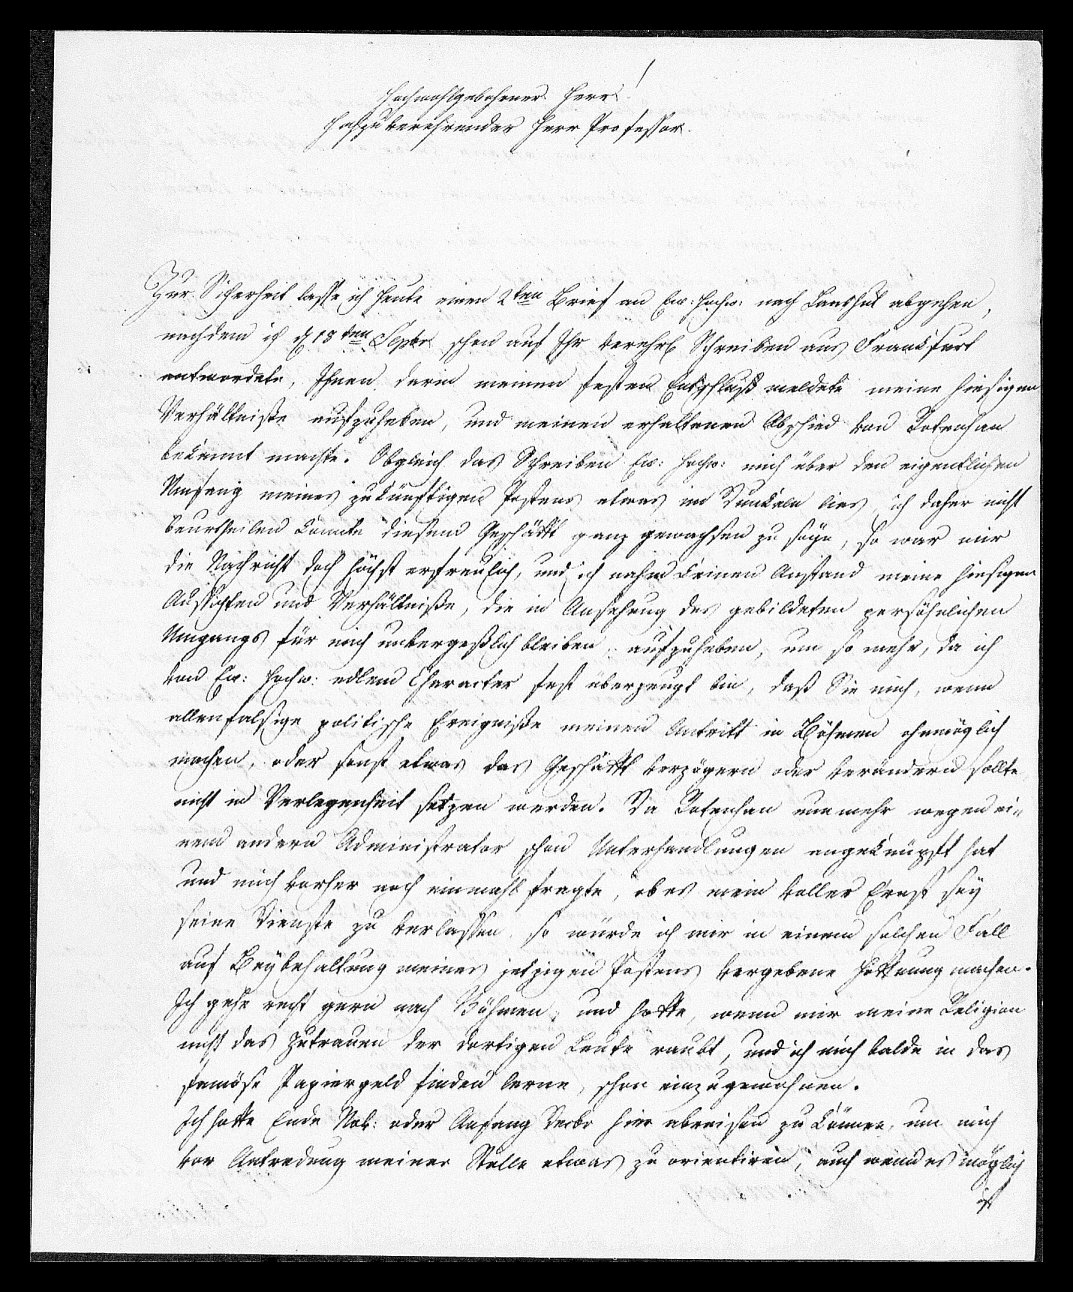 Hochwohlgebohrner Herr!
Hochzuverehrender Herr Professor.
Zur Sicherheit lasse ich heute einen 2ten Brief an Ew: Hochw: nach Landshut abgehen,
nachdem ich d 18ten Septbr schon auf Ihr verehrl Schreiben aus Frankfurt
antwordete, Ihnen darin meinen festen Entschluß meldete meine hiesigen
Verhältniße aufzuheben, und meinen erhaltenen Abschied von Rotenhan
bekannt machte. Obgleich das Schreiben Ew: Hochw: mich über den eigentlichen
Umfang meines zukünftigen Postens etwas im Dunkeln lies, ich daher nicht
beurtheilen konnte diesem Geschäft ganz gewachsen zu seyn, so war mir
die Nachricht doch höchst erfreulich, und ich nahm keinen Anstand meine hiesigen
Aussichten und Verhältniße, die in Ansehung des gebildeten persöhnlichen
Umgangs für mich unvergeßlich bleiben, aufzuheben, um so mehr, da ich
von Ew: Hochw: edlem Character fest überzeugt bin, daß Sie mich, wenn
allenfalsige politische Ereigniße meinen Antritt in Böhmen ohnmöglich
machen, oder sonst etwas das Geschäft verzögern oder verändern sollte
nicht in Verlegenheit setzen werden. Da Rotenhan nunmehr wegen ei-
nem andern Administrator schon Unterhandlungen angeknüpft hat
und mich vorher noch einmahl fragte, ob es mein voller Ernst sey
seine Dienste zu verlaßen, so würde ich mir in einem solchen Fall
auf Beybehaltung meines jetzigen Postens vergebene Hoffnung machen.
Ich gehe recht gern nach Böhmen, und hoffe, wenn mir meine Religion
nicht das Zutrauen der dortigen Leute raubt, und ich mich balde in das
famöse Papiergeld finden lerne, schon einzugewohnen.
Ich hoffe Ende Nov: oder Anfang Decbr hier abreisen zu können, um mich
vor Antredung meiner Stelle etwas zu orientiren, auch wenn es möglich
ist